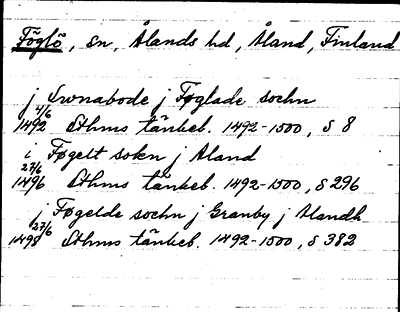 Föglö, sn, Ålands hd, Åland, Finland
j Swnabode j Føglade sochn
4/6
1492 Sthms tänkeb. 1492-1500, s 8
i Føgelt sokn j Aland
27/6
1496 Sthms tänkeb. 1492-1500, s 296
j Føgelde sochn j Granby j Alandh
27/6
1498 Sthms tänkeb. 1492-1500, s 382